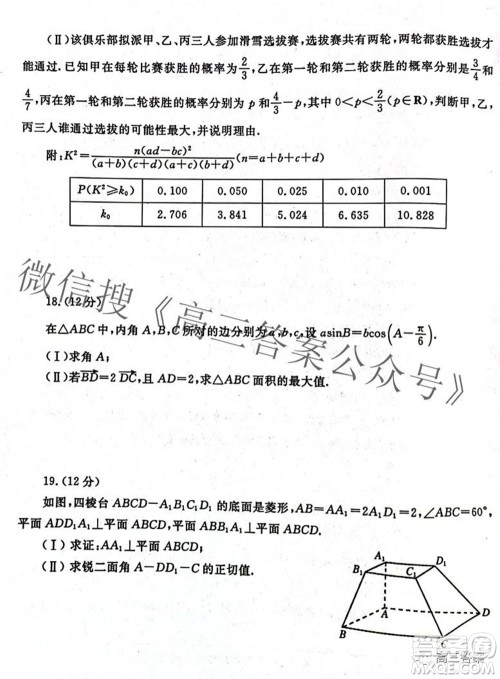 (Ⅱ)该俱乐部拟派甲、乙、丙三人参加滑雪选拔赛,选拔赛共有两轮,两轮都获胜才
能通过.已知甲在每轮比赛获胜的概率为2/3,乙在第一轮和第二轮获胜的概率分别是3/4和
4/7,丙在第一轮和第二轮获胜的概率分别为 p 和4/3-p,其中 0<p<2/3(p∈R),判断甲、乙、
丙三人谁通过选拔的可能性最大,并说明理由.
附:K²=n(ad-bc)²/((a+b)(c+d)(a+c)(b+d))(n=a+b+c+d)
P(K²≥k₀) 0.100 0.050 0.025 0.010 0.001
k₀ 2.706 3.841 5.024 6.635 10.828
18.(12分)
在△ABC中,内角A,B,C所对的边分别为a,b,c,设asinB=bcos(A-π/6).
(Ⅰ)求角A;
(Ⅱ)若BD=2DC,且AD=2,求△ABC面积的最大值.
微信搜《高三答案公众号》
19.(12分)
如图,四棱台ABCD-A₁B₁C₁D₁的底面是菱形,AB=AA₁=2A₁D₁=2,∠ABC=60°,
平面ADD₁A₁⊥平面ABCD,平面ABB₁A₁⊥平面ABCD.
(Ⅰ)求证:AA₁⊥平面ABCD;
(Ⅱ)求锐二面角A-DD₁-C的正切值.
A₁
D₁
B₁
C₁
A
D
B
C
高三答案